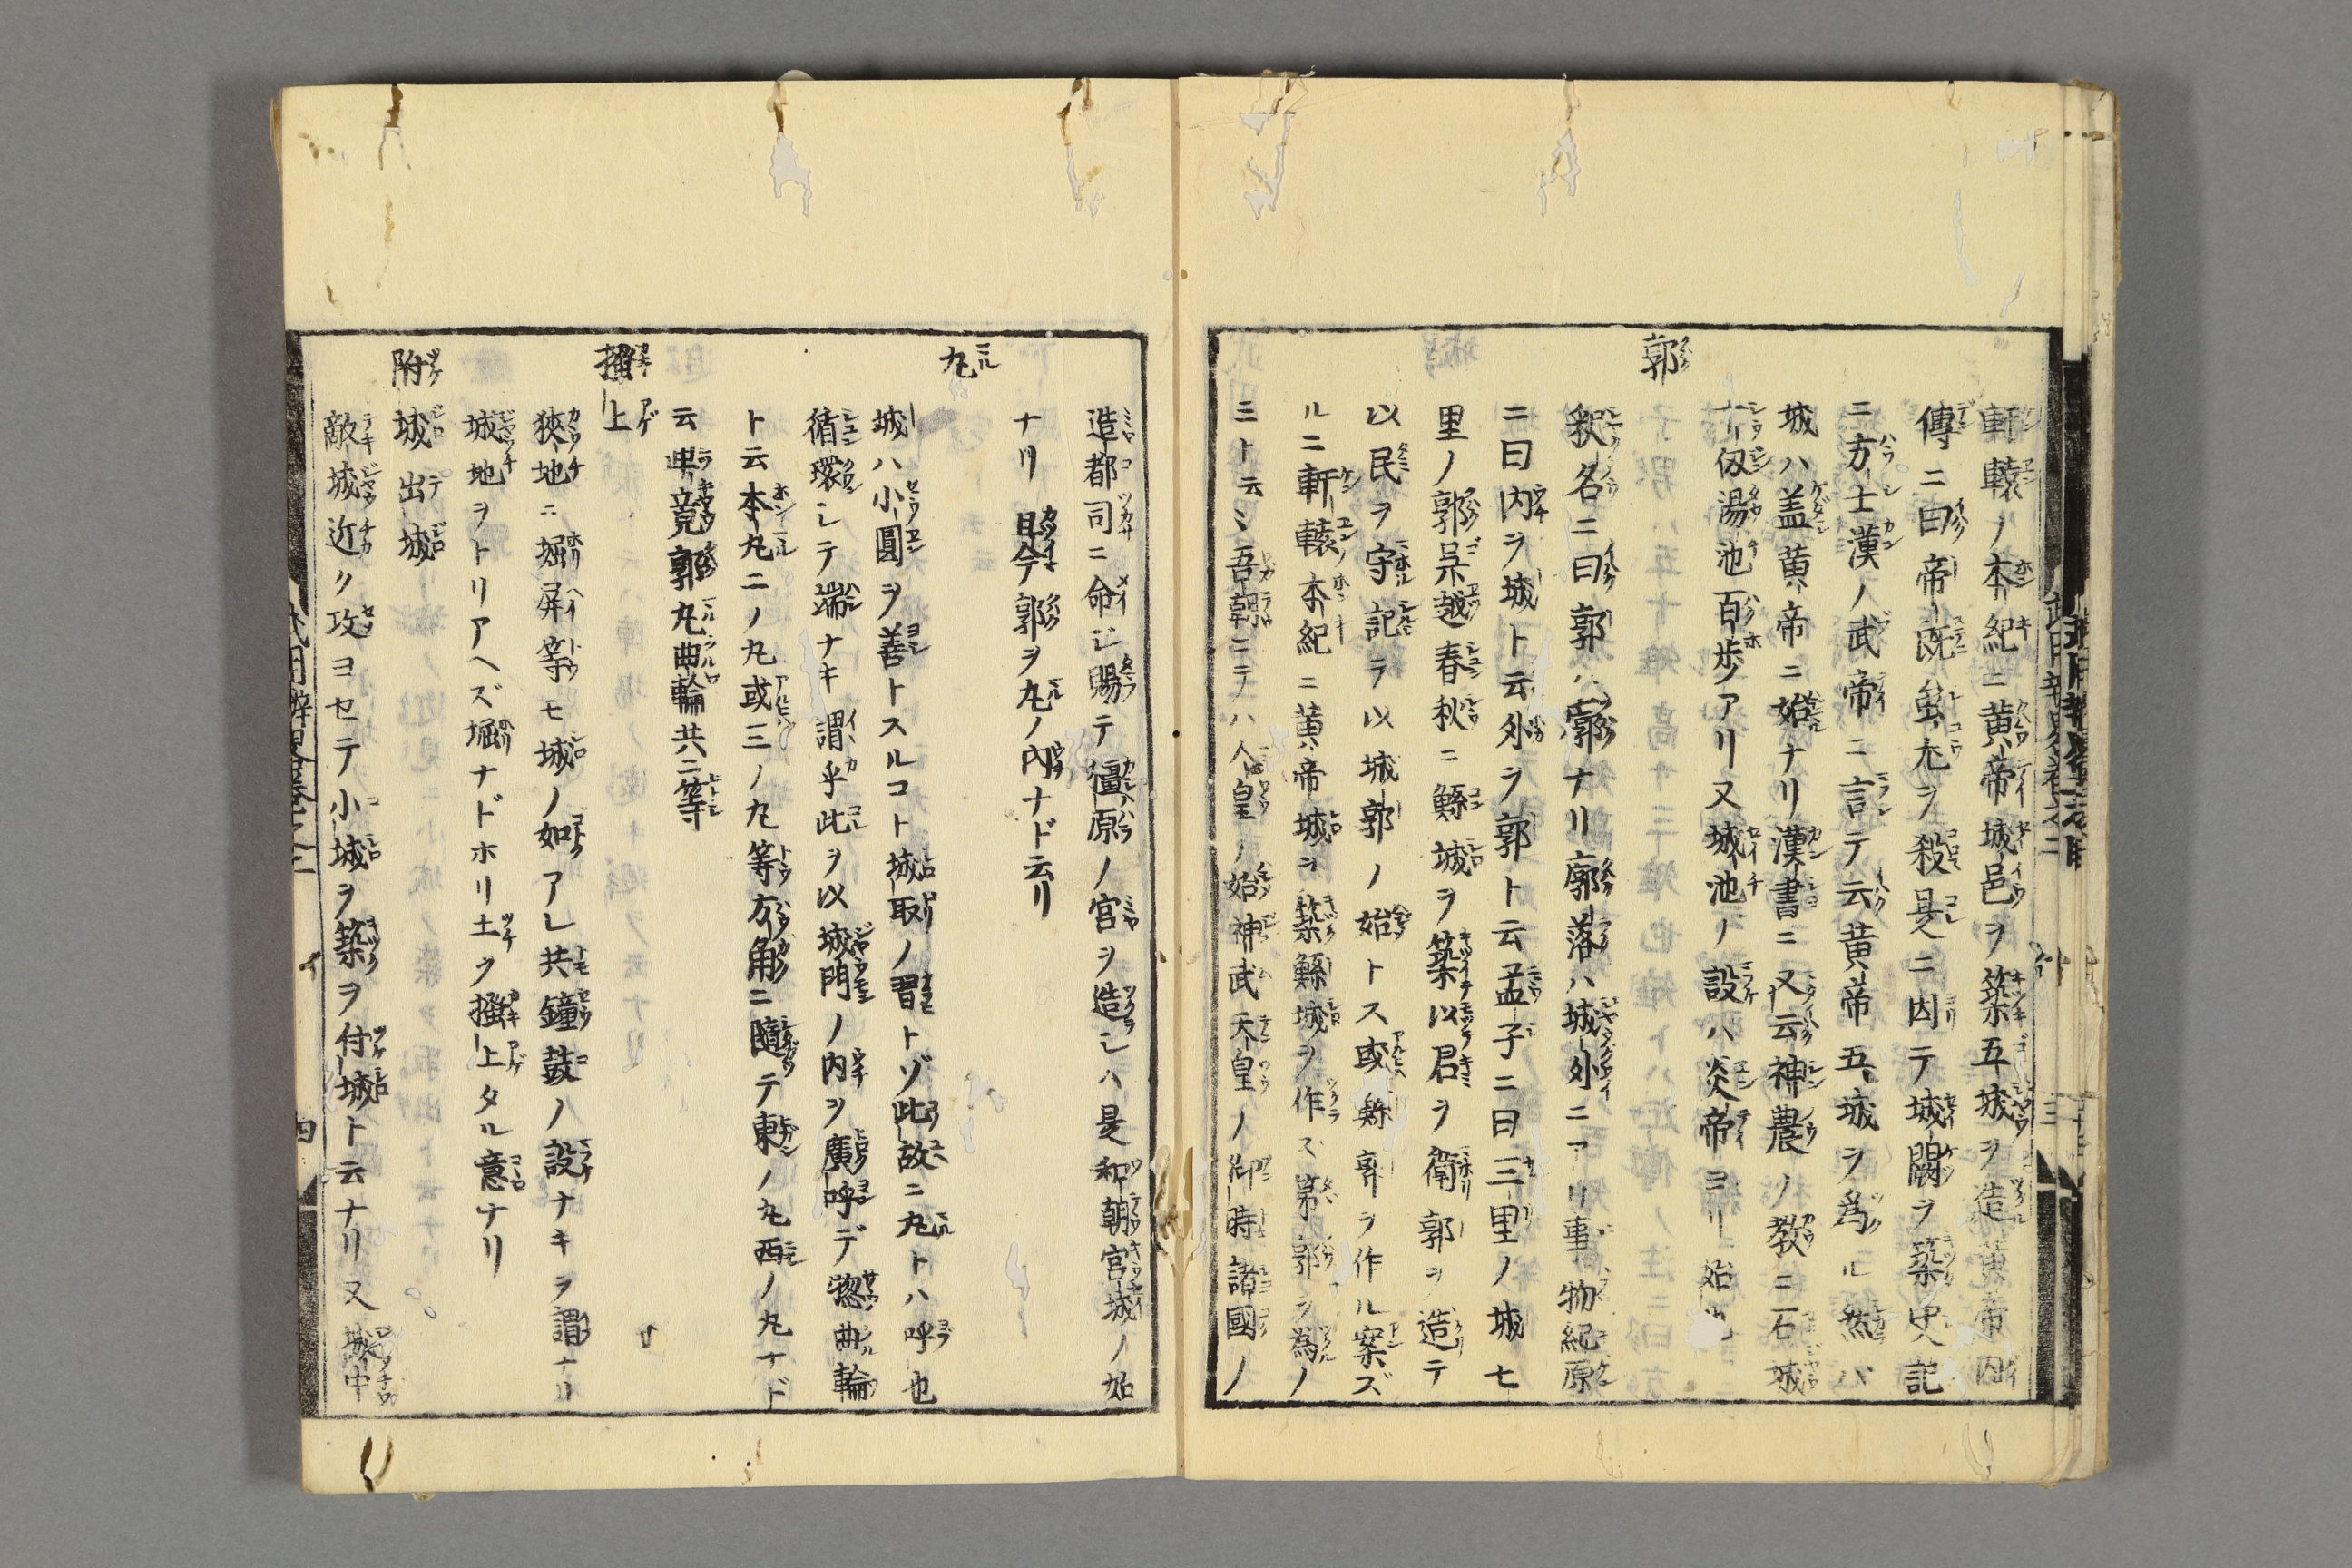 軒轅ノ本紀ニ黄帝城邑ヲ築五城ヲ造黄帝内
傳ニ曰帝既蚩尤ヲ殺是ニ因テ城闕ヲ築史記
ニ方士漢ノ武帝ニ言テ云黄帝五城ヲ爲ル然バ
城ハ盖黄帝ニ始ナリ漢書ニ又云神農ノ教ニ石城
十仭湯池百歩アリ又城池ノ設ハ炎帝ヨリ始
郭
釈名ニ曰郭ハ廓ナリ廓落ハ城外ニアリ事物紀原
ニ曰内ヲ城ト云外ヲ郭ト云孟子ニ曰三里ノ城七
里ノ郭呉越春秋ニ鯀城ヲ築以君ヲ衛郭ヲ造テ
以民ヲ守記ラ以城郭ノ始トス或鯀郭ヲ作ル案ズ
ルニ軒轅本紀ニ黄帝城ヲ築鯀城ヲ作ズ第郭ヲ為ノ
ミト云ミ吾朝ニテハ人皇ノ始神武天皇ノ御時諸國ノ
造都司ニ命ジ賜テ橿原ノ宮ヲ造シハ是和朝宮城ノ始
ナリ且今郭ヲ丸ノ内ナド云リ
丸
城ハ小圓ヲ善トスルコト城取ノ習トゾ此故ニ丸トハ呼也
循環シテ端ナキ謂乎此ヲ以城門ノ内ヲ廣呼デ惣曲輪
ト云本丸二ノ丸或三ノ丸等方角ニ隨テ東ノ丸西ノ丸ナド
云畢竟郭丸曲輪共ニ等
掻上
狹地ニ堀屏等モ城ノ如アレ共鐘鼓ノ設ナキヲ謂ナリ
城地ヲトリアヘズ堀ナドホリ土ヲ掻上タル意ナリ
附城 出城
敵城近ク攻ヨセテ小城ヲ築ヲ付城ト云ナリ又城中